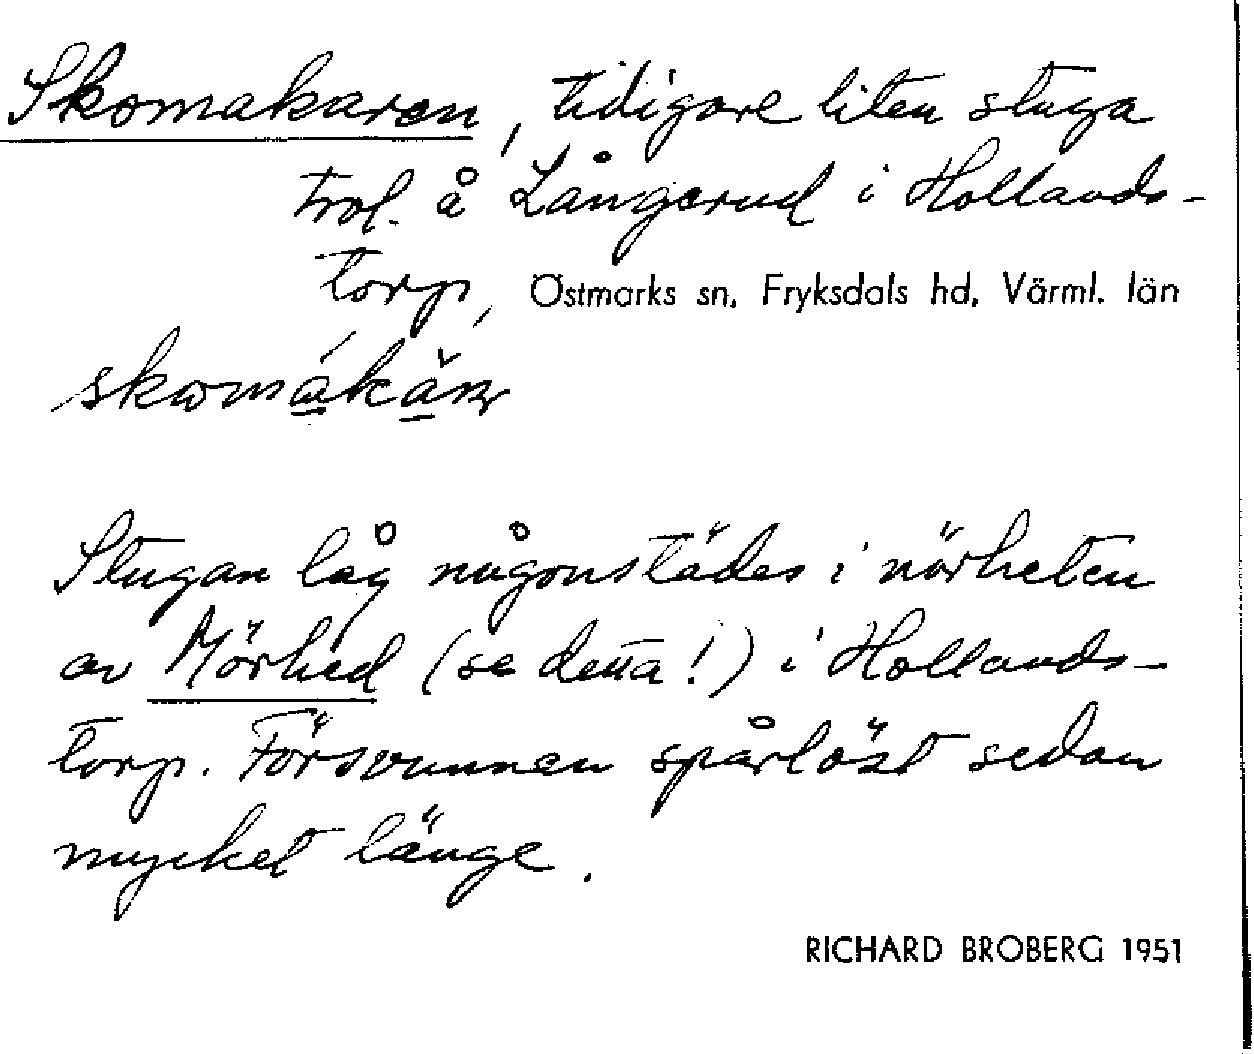 Skomakaren, tidigare liten stuga
trol. å Långerud i Hollands-
torp, Östmarks sn, Fryksdals hd, Värml. län
Stugan låg någonstädes i närheten
av Mörhed (se detta!) i Hollands-
torp. Försvunnen spårlöst sedan
mycket länge.
RICHARD BROBERG 1951